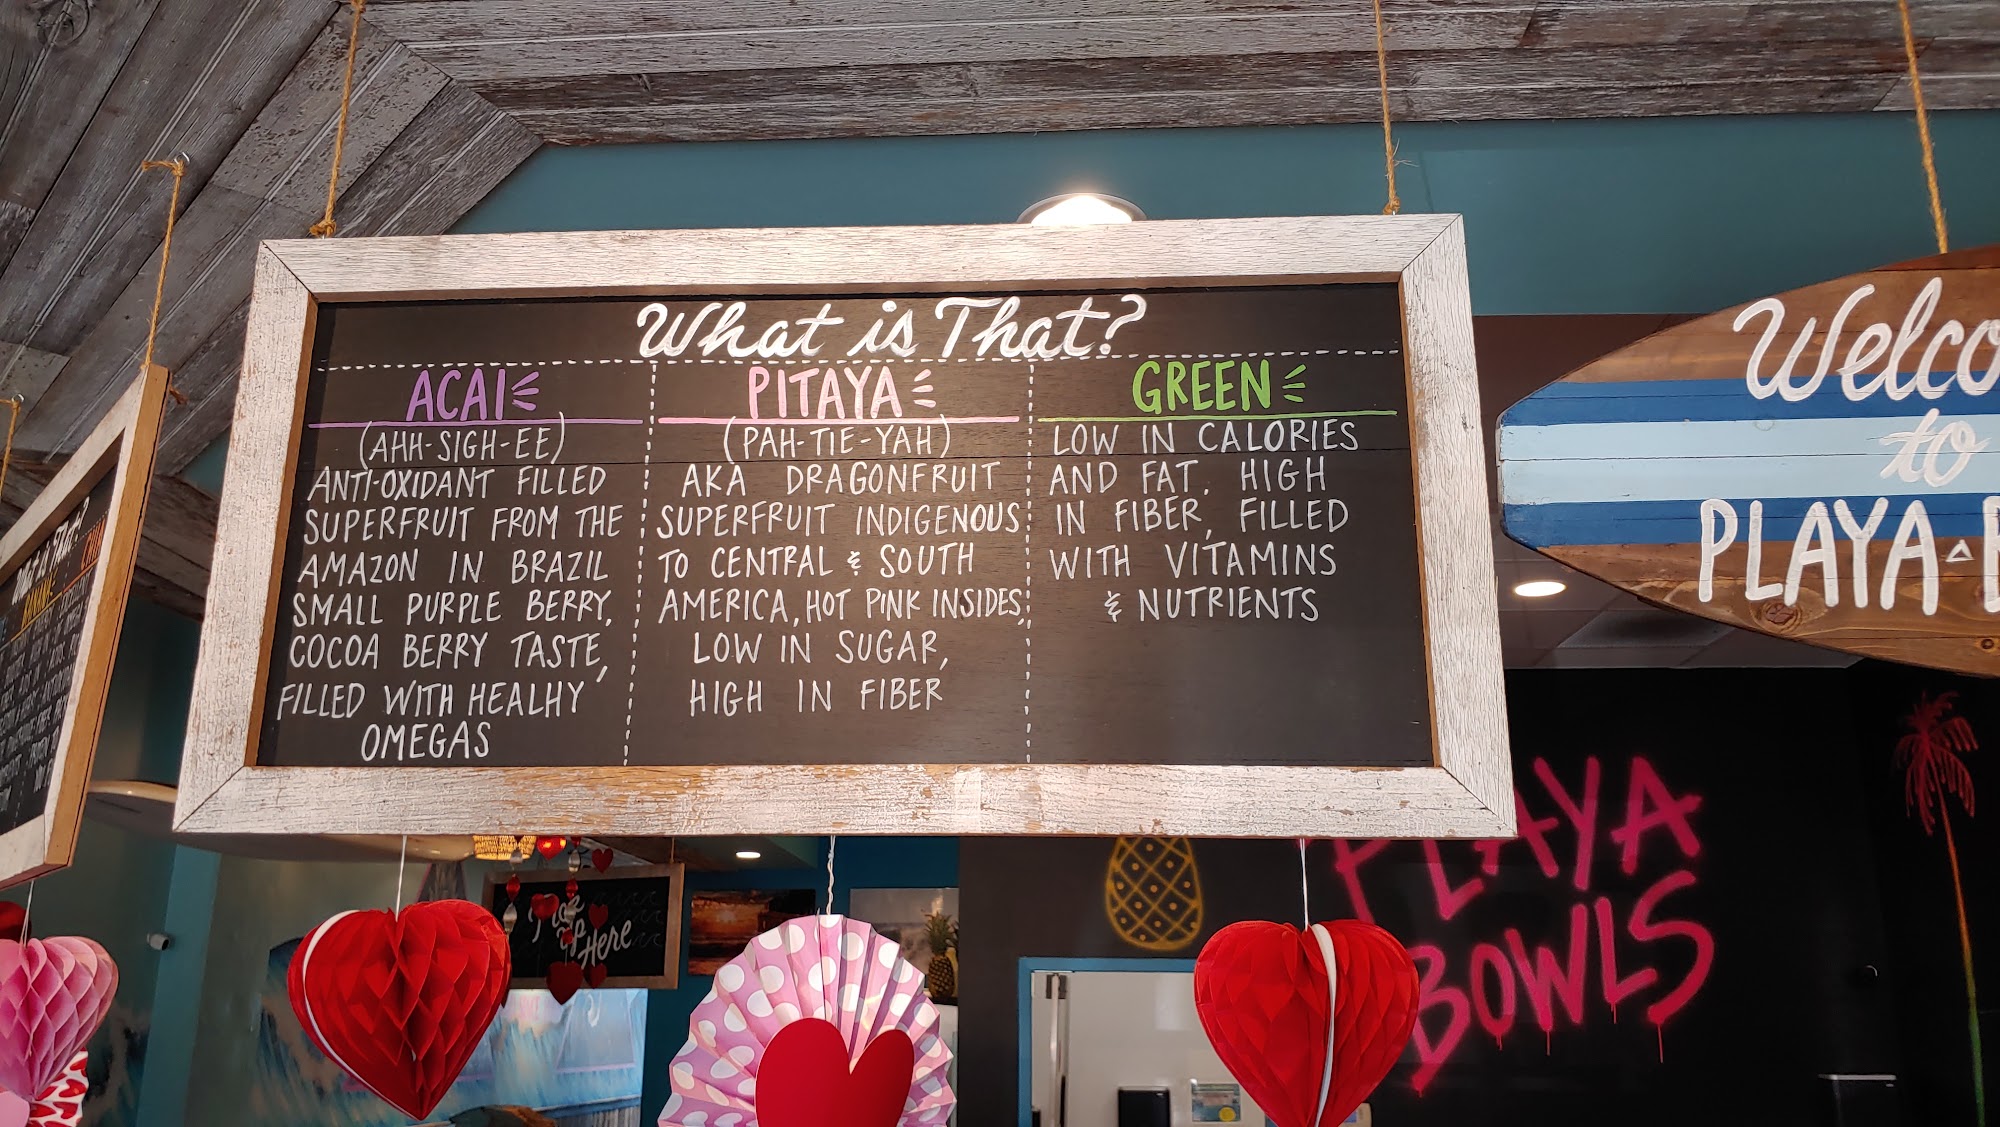 What is That?
ACAI
(AHH-SIGH-EE)
ANTI-OXIDANT FILLED
SUPERFRUIT FROM THE
AMAZON IN BRAZIL
SMALL PURPLE BERRY,
COCOA BERRY TASTE,
FILLED WITH HEALHY
OMEGAS
PITAYA
(PAH-TIE-YAH)
AKA DRAGONFRUIT
SUPERFRUIT INDIGENOUS
TO CENTRAL & SOUTH
AMERICA, HOT PINK INSIDES,
LOW IN SUGAR,
HIGH IN FIBER
GREEN
LOW IN CALORIES
AND FAT, HIGH
IN FIBER, FILLED
WITH VITAMINS
& NUTRIENTS
Welco
to
PLAYA
What is That?
BANANA
Here
PLAYA
BOWLS